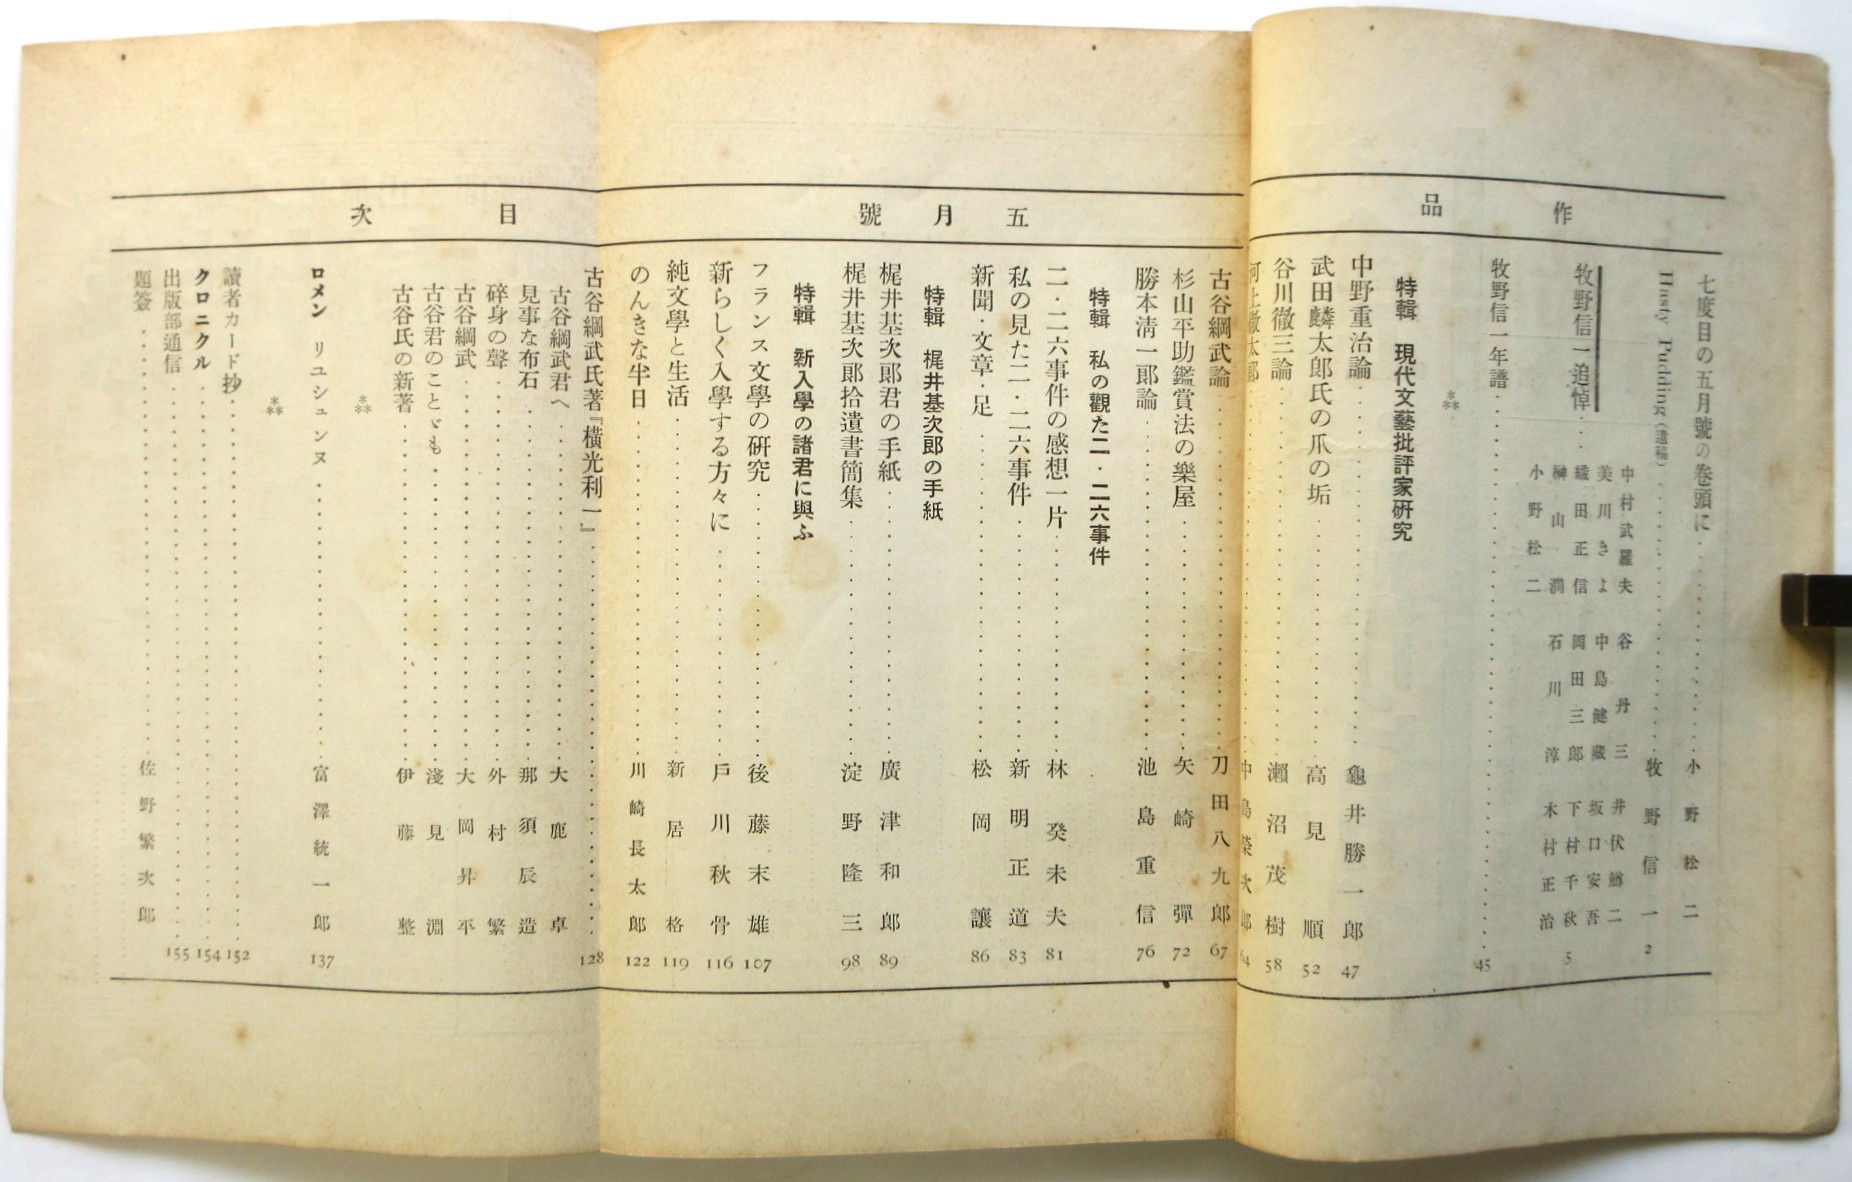 作品 五月號 目次
七度目の五月號の巻頭に 小野松二
Hasty Pudding（遺稿） 牧野信一 2
牧野信一追悼 5
中村武羅夫 谷丹三 井伏鱒二
美川きよ 中島健藏 坂口安吾
織田正信 岡田三郎 下村千秋
榊山潤 石川淳 木村正治
小野松二
牧野信一年譜 45
⁂
特輯 現代文藝批評家研究
中野重治論 龜井勝一郎 47
武田麟太郎氏の爪の垢 高見順 52
谷川徹三論 瀨沼茂樹 58
河上徹太郎 中島榮次郎 64
古谷綱武論 刀田八九郎 67
杉山平助鑑賞法の樂屋 矢崎彈 72
勝本清一郎論 池島重信 76
特輯 私の觀た二・二六事件
二・二六事件の感想一片 林癸未夫 81
私の見た二・二六事件 新明正道 83
新聞・文章・足 松岡讓 86
特輯 梶井基次郎の手紙
梶井基次郎君の手紙 廣津和郎 89
梶井基次郎拾遺書簡集 淀野隆三 98
特輯 新入學の諸君に與ふ
フランス文學の研究 後藤末雄 107
新らしく入學する方々に 戶川秋骨 116
純文學と生活 新居格 119
のんきな半日 川崎長太郎 122
古谷綱武氏著『橫光利一』 128
古谷綱武君へ 大鹿卓
見事な布石 那須辰造
碎身の聲 外村繁
古谷綱武 大岡昇平
古谷君のことゞも 淺見淵
古谷氏の新著 伊藤整
⁂
ロメン リユシュンヌ 富澤統一郎 137
⁂
讀者カード抄 152
クロニクル 154
出版部通信 155
題簽 佐野繁次郎